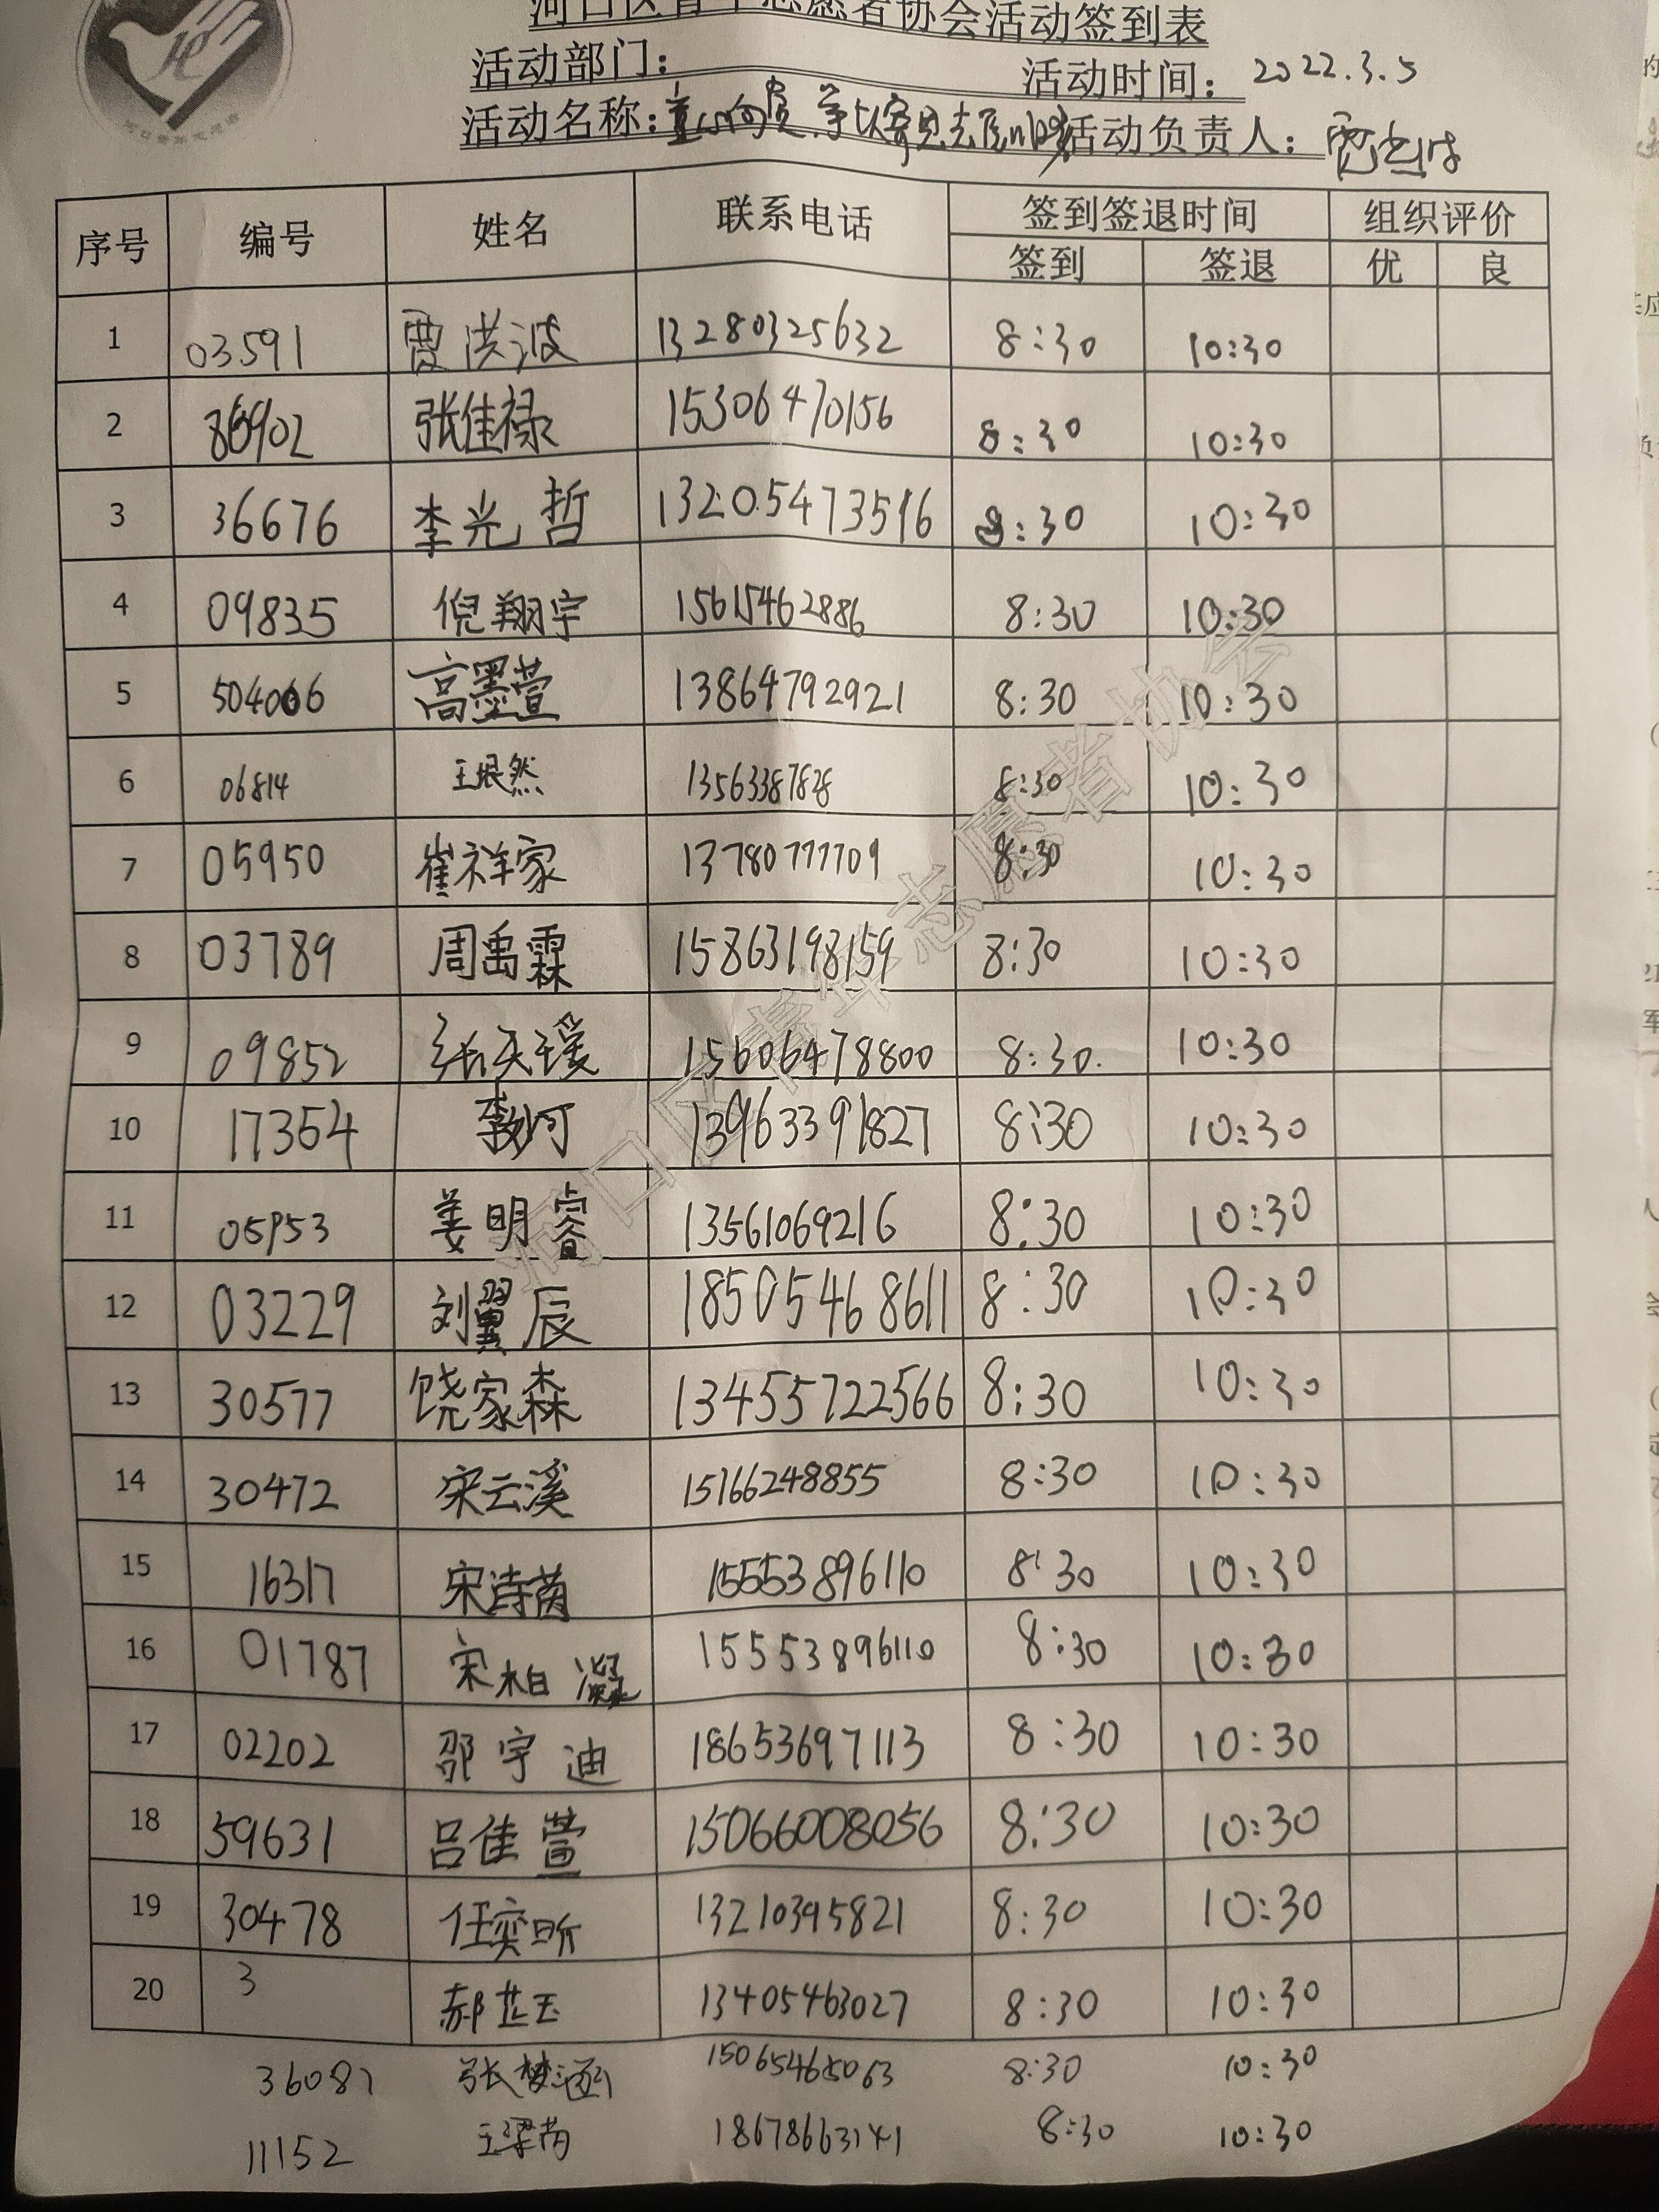 河口区青年志愿者协会活动签到表
活动部门：
活动时间：2022.3.5
活动名称：童心向党,争
活动负责人：贾洪波
序号 编号 姓名 联系电话 签到签退时间 组织评价
签到 签退 优 良
1 03591 贾洪波 13280325632 8:30 10:30
2 36902 张佳禄 15306470156 8:30 10:30
3 36676 李光哲 13205473516 8:30 10:30
4 09835 倪翔宇 15615462886 8:30 10:30
5 504066 高墨萱 13864792921 8:30 10:30
6 06814 王垠然 13563387828 8:30 10:30
7 05950 崔祥家 13780777709 8:30 10:30
8 03789 周禹霖 15863198159 8:30 10:30
9 09852 张天瑗 15606478800 8:30. 10:30
10 17354 13963391827 8:30 10:30
11 05953 姜明睿 13561069216 8:30 10:30
12 03229 刘翼辰 18505468611 8:30 10:30
13 30577 饶家森 13455722566 8:30 10:30
14 30472 宋云溪 15166248855 8:30 10:30
15 16317 宋诗茵 15553896110 8:30 10:30
16 01787 宋柏凝 15553896110 8:30 10:30
17 02202 邵宇迪 18653697113 8:30 10:30
18 59631 吕佳萱 15066008056 8:30 10:30
19 30478 任奕昕 13210395821 8:30 10:30
20 3 郝芷玉 13405463027 8:30 10:30
36087 张梦涵 15065465063 8:30 10:30
11152 王梁芮 18678663141 8:30 10:30
河口区青年志愿者协会